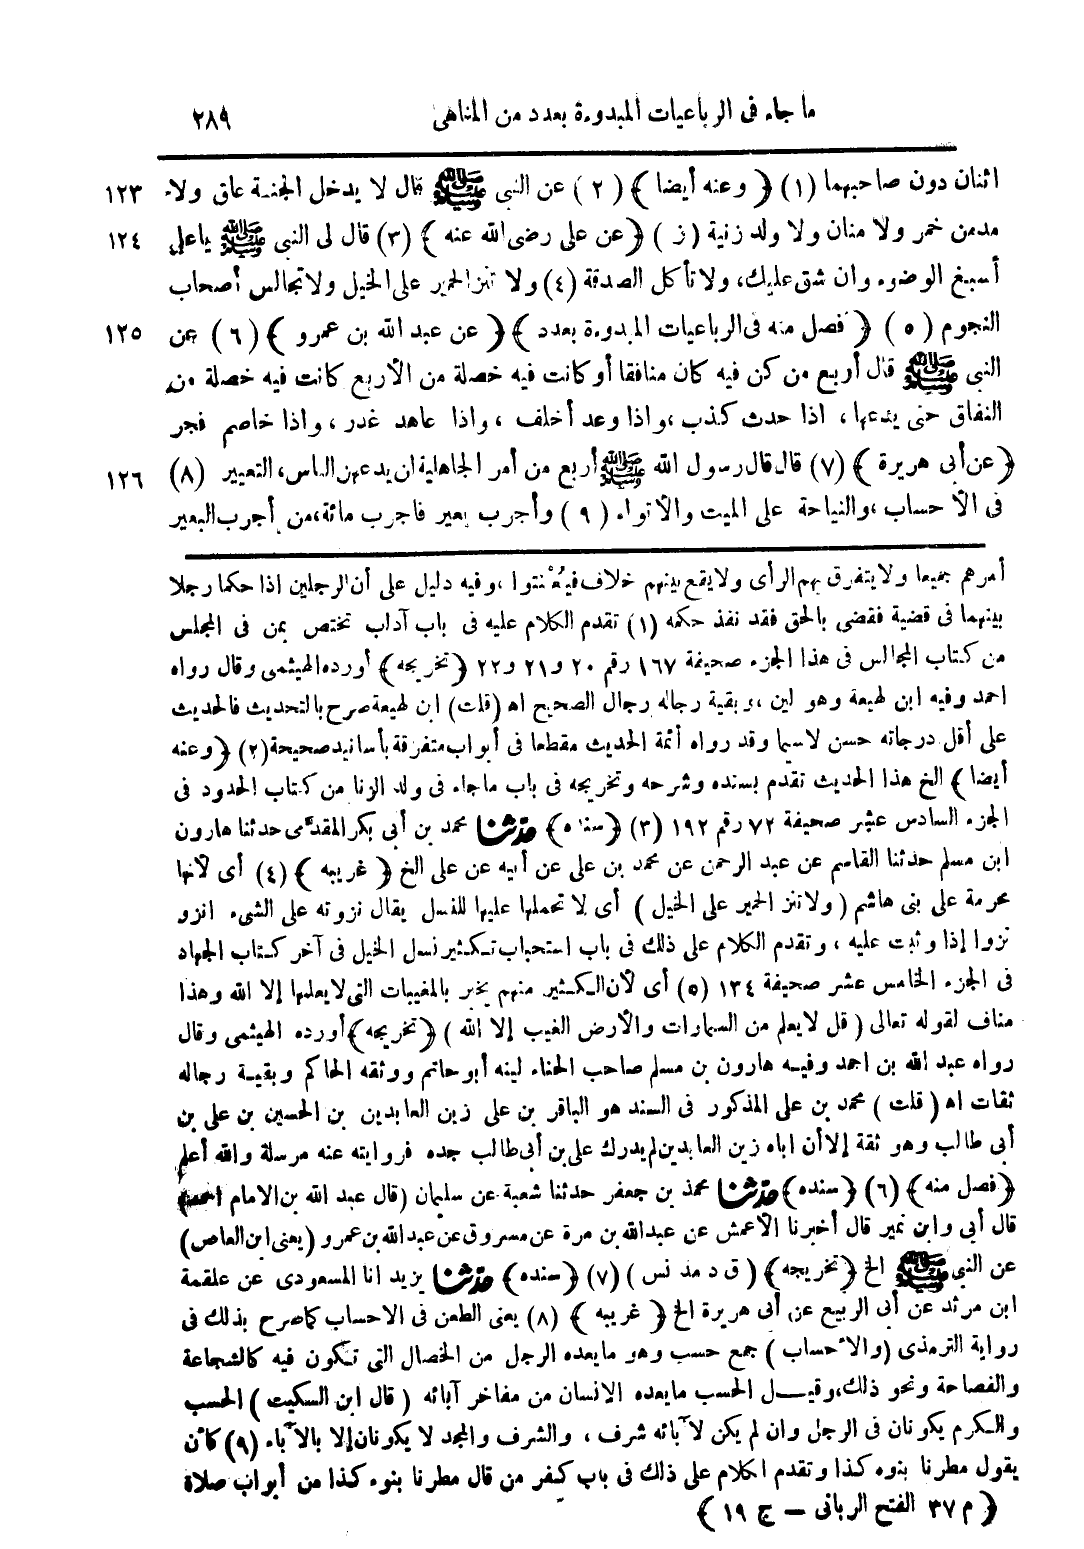 ما جاء فى الرباعيات المبدوءة بعدد من المناهى ٢٨٩
اثنان دون صاحبهما (١) ﴿ وعنه أيضا ﴾ (٢) عن النبى ﷺ قال لا يدخل الجنة عاق ولا ١٢٣
مدمن خمر ولا منان ولا ولد زنية (ز) ﴿ عن على رضى الله عنه ﴾ (٣) قال لى النبى ﷺ ياعلى ١٢٤
أسبغ الوضوء وان شق عليك، ولا تأكل الصدقة (٤) ولا تنز الحمير على الخيل ولا تجالس أصحاب
النجوم (٥) ﴿ فصل منه فى الرباعيات المبدوءة بعدد ﴾ ﴿ عن عبد الله بن عمرو ﴾ (٦) عن ١٢٥
النبى ﷺ قال أربع من كن فيه كان منافقا أو كانت فيه خصلة من الأربع كانت فيه خصلة من
النفاق حتى يدعها، اذا حدث كذب، واذا وعد أخلف، واذا عاهد غدر، واذا خاصم فجر
﴿ عن أبى هريرة ﴾ (٧) قال قال رسول الله ﷺ أربع من أمر الجاهلية ان يدعهن الناس، التعيير (٨) ١٢٦
فى الأحساب، والنياحة على الميت والأنواء (٩) وأجرب بعير فاجرب مائة، من أجرب البعير
أمرهم جميعا ولا يتفرق بهم الرأى ولا يقع بينهم خلاف فيعْنتوا، وفيه دليل على أن الرجلين اذا حكما رجلا
بينهما فى قضية فقضى بالحق فقد نفذ حكمه (١) تقدم الكلام عليه فى باب آداب تختص بمن فى المجلس
من كتاب المجالس فى هذا الجزء صحيفة ١٦٧ رقم ٢٠ و ٢١ و ٢٢ ﴿ تخريجه ﴾ أورده الهيثمى وقال رواه
احمد وفيه ابن لهيعة وهو لين، وبقية رجاله رجال الصحيح اه (قلت) ابن لهيعة صرح بالتحديث فالحديث
على أقل درجاته حسن لاسيما وقد رواه أئمة الحديث مقطعا فى أبواب متفرقة بأسانيد صحيحة (٢) ﴿ وعنه
أيضا ﴾ الخ هذا الحديث تقدم بسنده وشرحه وتخريجه فى باب ماجاء فى ولد الزنا من كتاب الحدود فى
الجزء السادس عشر صحيفة ٧٢ رقم ١٩٢ (٣) ﴿ سنده ﴾ حدثنا محمد بن أبي بكر المقدمى حدثنا هارون
ابن مسلم حدثنا القاسم عن عبد الرحمن عن محمد بن على عن أبيه عن على الخ ﴿ غريبه ﴾ (٤) أى لأنها
محرمة على بنى هاشم (ولا تنز الحمير على الخيل) أى لا تحملها عليها للنسل يقال نزوته على الشىء انزو
نزوا إذا وثبت عليه، وتقدم الكلام على ذلك فى باب استحباب تكثير نسل الخيل فى آخر كتاب الجهاد
فى الجزء الخامس عشر صحيفة ١٣٤ (٥) أى لأن الكثير منهم يخبر بالمغيبات التى لا يعلمها إلا الله وهذا
مناف لقوله تعالى (قل لا يعلم من السمارات والأرض الغيب إلا الله) ﴿ تخريجه ﴾ أورده الهيثمى وقال
رواه عبد الله بن احمد وفيه هارون بن مسلم صاحب الحناء لينه أبو حاتم ووثقه الحاكم وبقية رجاله
ثقات اه (قلت) محمد بن على المذكور فى السند هو الباقر بن على زين العابدين بن الحسين بن على بن
أبى طالب وهو ثقة إلا أن اباه زين العابدين لم يدرك على بن أبى طالب جده فروايته عنه مرسلة والله أعلم
﴿ فصل منه ﴾ (٦) ﴿ سنده ﴾ حدثنا محمد بن جعفر حدثنا شعبة عن سليمان (قال عبد الله بن الامام احمد)
قال أبى وابن نمير قال أخبرنا الأعمش عن عبد الله بن مرة عن مسروق عن عبد الله بن عمرو (يعنى ابن العاص)
عن النبى ﷺ الخ ﴿ تخريجه ﴾ (ق د مذ نس) (٧) ﴿ سنده ﴾ حدثنا يزيد انا المسعودى عن علقمة
ابن مرثد عن أبى الربيع عن أبى هريرة الخ ﴿ غريبه ﴾ (٨) يعنى الطعن فى الاحساب كما صرح بذلك فى
رواية الترمذى (والأحساب) جمع حسب وهو ما يعده الرجل من الخصال التى تكون فيه كالشجاعة
والفصاحة ونحو ذلك، وقيل الحسب ما يعده الانسان من مفاخر آبائه (قال ابن السكيت) الحسب
والكرم يكونان فى الرجل وان لم يكن لآبائه شرف، والشرف والمجد لا يكونان إلا بالآباء (٩) كأن
يقول مطرنا بنوء كذا وتقدم الكلام على ذلك فى باب كيفر من قال مطرنا بنوء كذا من أبواب صلاة
﴿ م ٣٧ الفتح الربانى — ج ١٩ ﴾